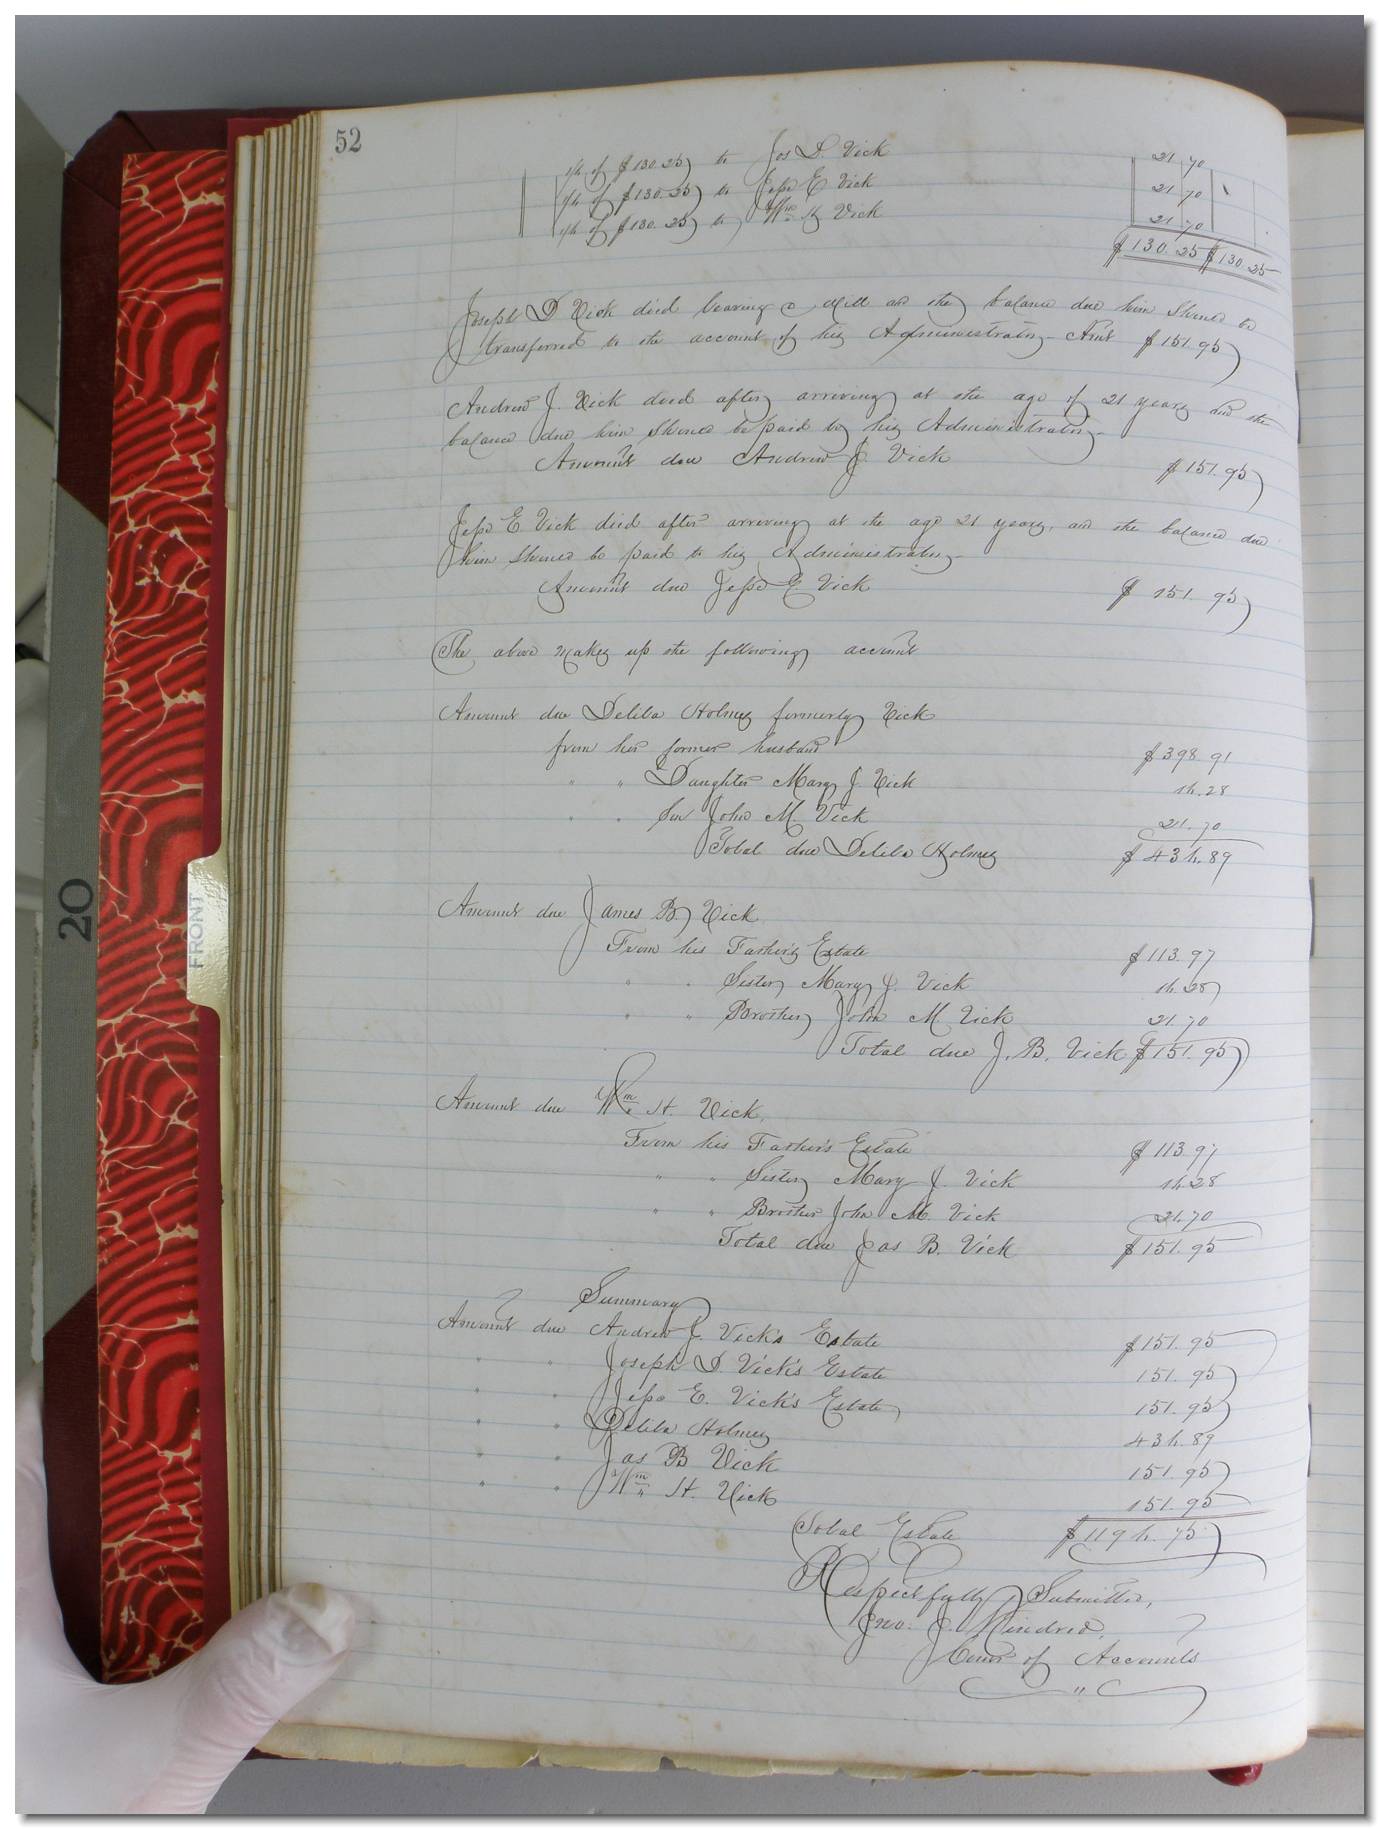 52
1/6 of $130.25 to Jos D. Vick 21.70
1/6 of $130.25 to Jesse E Vick 21.70
1/6 of $130.25 to Wm H Vick 21.70
$130.25 $130.25
Joseph D Vick died leaving a Will and the balance due him should be
transferred to the account of his Administrator - Amt $151.95
Andrew J. Vick died after arriving at the age of 21 years and the
balance due him should be paid to his Administrator -
Amount due Andrew J. Vick $151.95
Jesse E Vick died after arriving at the age 21 years, and the balance due
him should be paid to his Administrator -
Amount due Jesse E Vick $151.95
The above makes up the following account
Amount due Delila Holmes formerly Vick
from her former husband $398.91
" " Daughter Mary J. Vick 16.28
" " Son John M. Vick 21.70
Total due Delila Holmes $436.89
Amount due James B. Vick
From his Father's Estate $113.97
" " Sister Mary J. Vick 16.28
" " Brother John M. Vick 21.70
Total due J. B. Vick $151.95
Amount due Wm H. Vick,
From his Father's Estate $113.97
" " Sister Mary J. Vick 16.28
" " Brother John M. Vick 21.70
Total due Jas B. Vick $151.95
Summary
Amount due Andrew J. Vick's Estate $151.95
" " Joseph D. Vick's Estate 151.95
" " Jesse E. Vick's Estate 151.95
" " Delila Holmes 436.89
" " Jas B Vick 151.95
" " Wm H. Vick 151.95
Total Estate $1196.75
Respectfully Submitted,
Jno. J. Kindred,
Comr of Accounts
20
FRONT